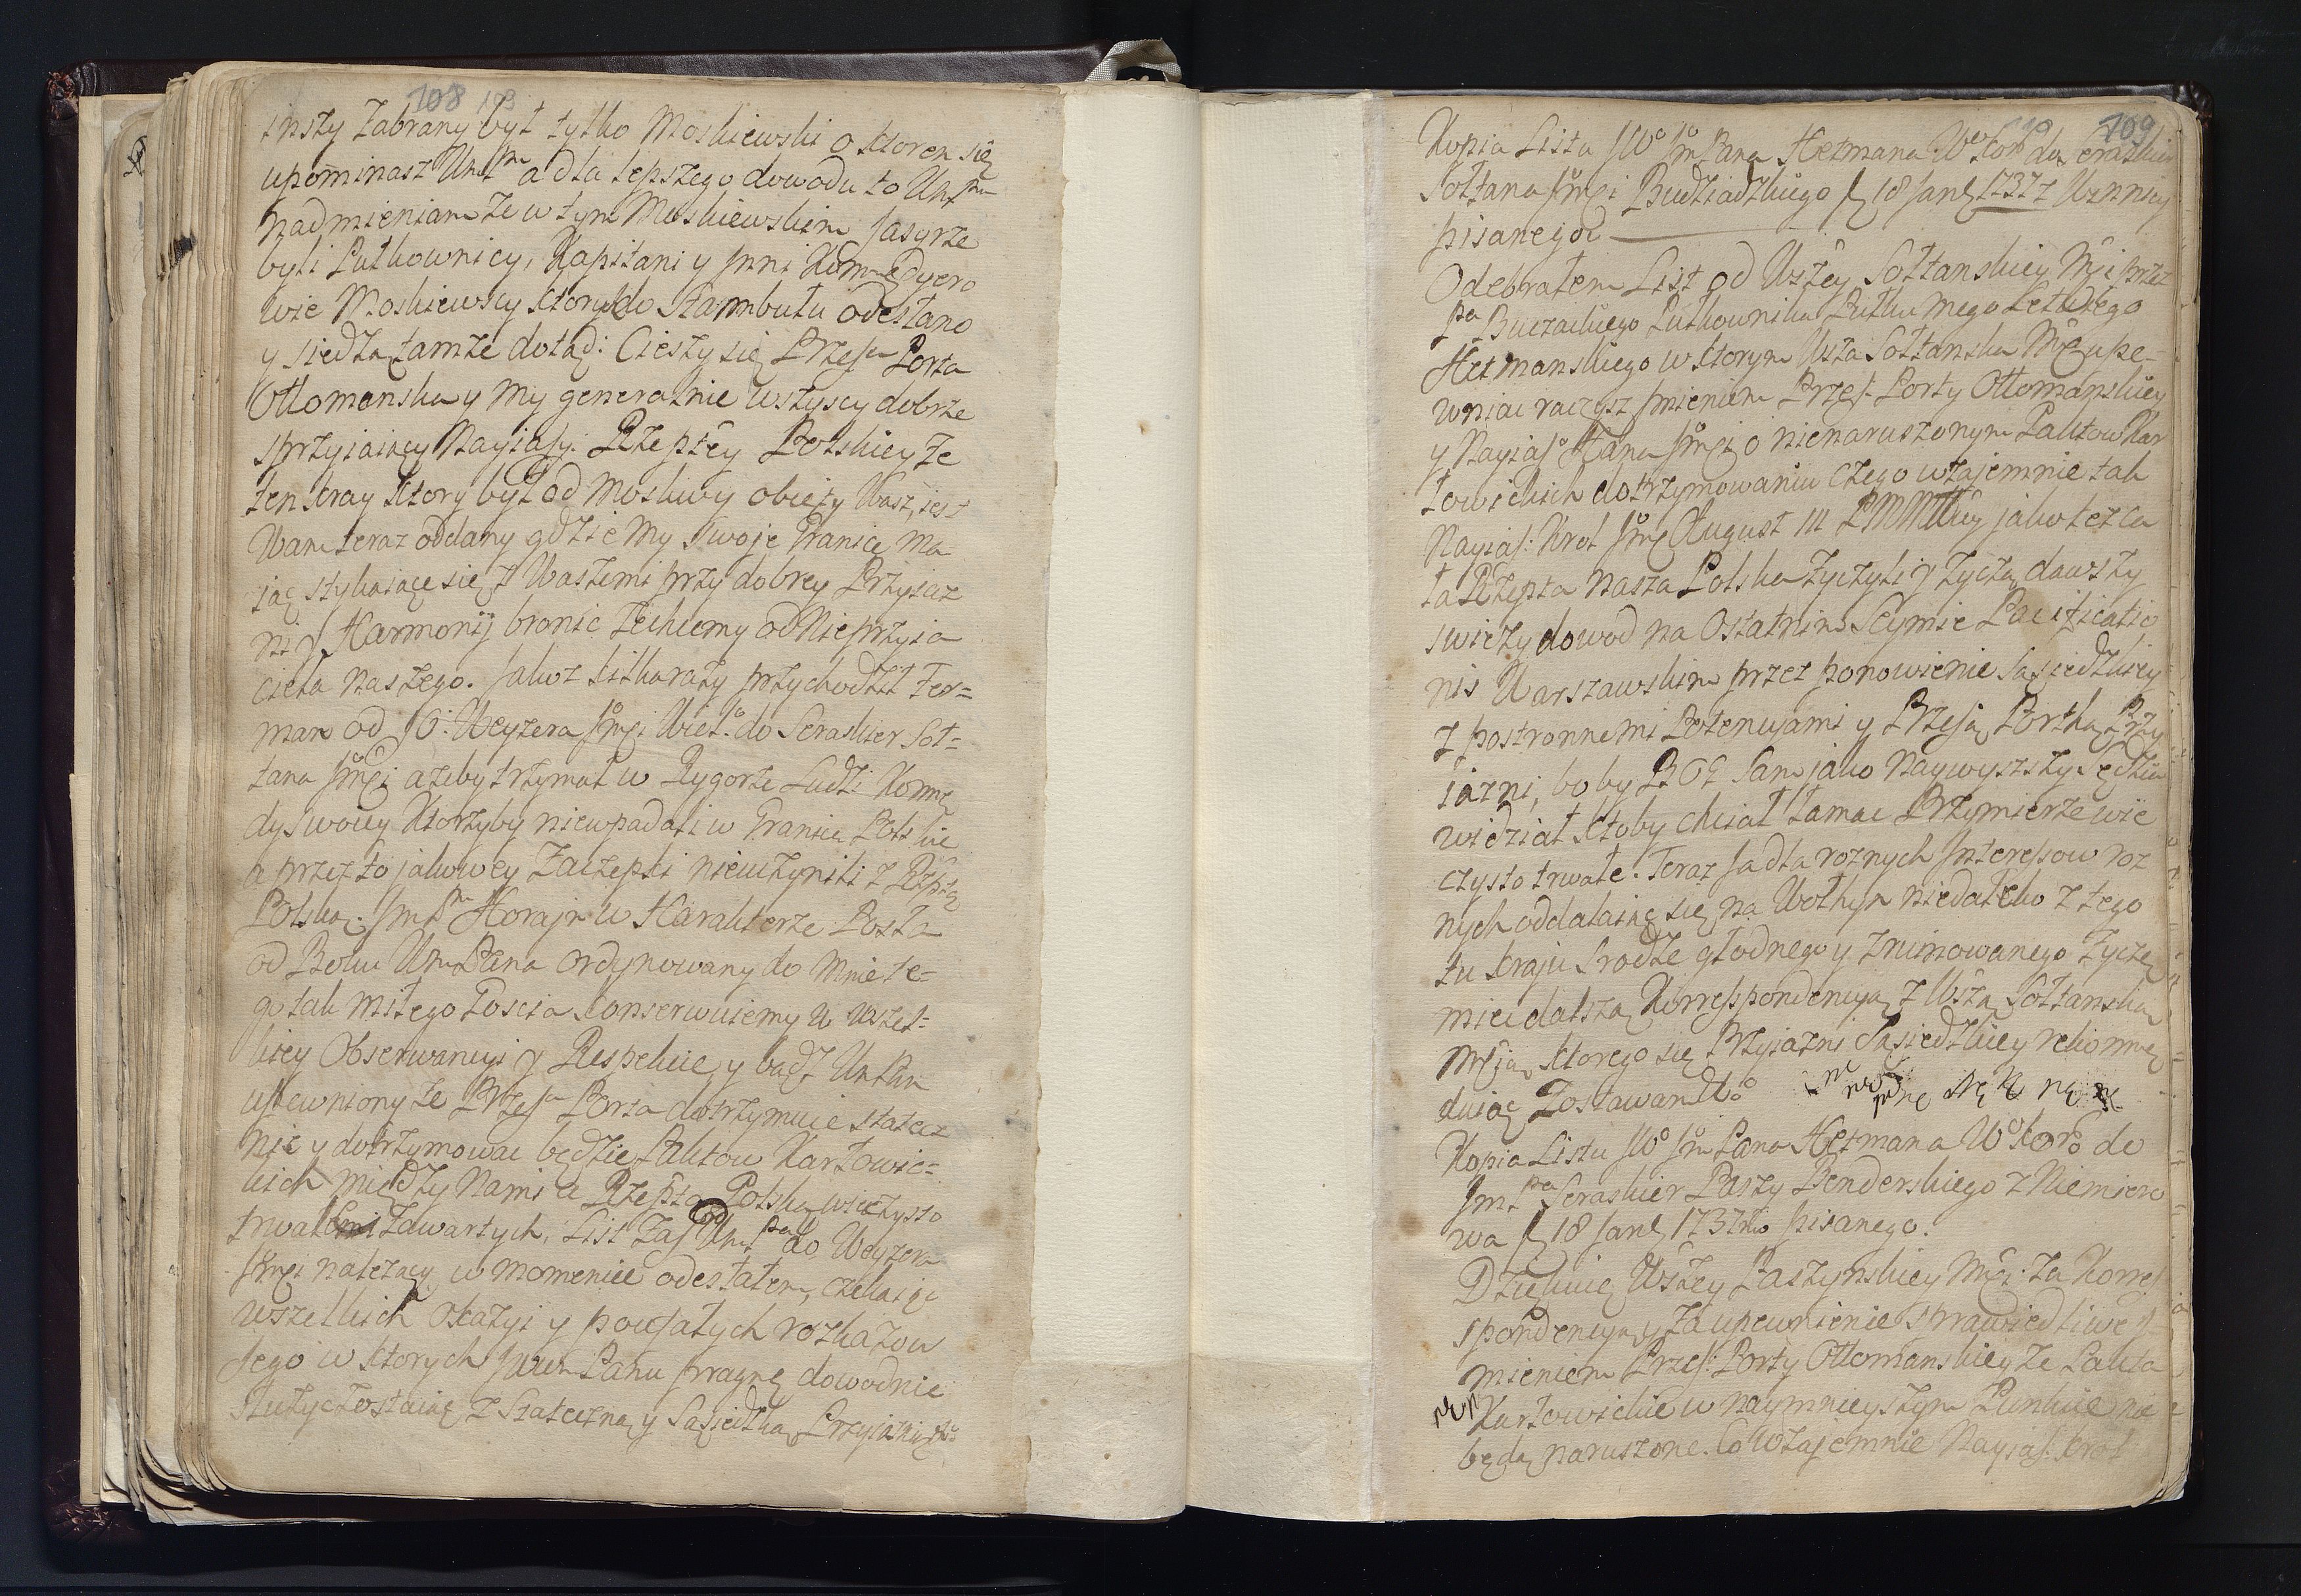 108 103
inszy zabrany był tylko Moskiewski o ktoren się
upominasz Wm Pan a dla lepszego dowodu to Wm Panu
nadmieniam że w tym Moskiewskim Jasyrze
byli Pułkownicy, Kapitani y inni
wie Moskiewscy ktorych do Stambułu odesłano
y siedzą tamże dotąd: Cieszy się Prześ. Porta
Ottomanska y my generalnie wszyscy dobrze
sprzyiaiący Nayiaś: Rzeptey Polskiey że
ten kray ktory był od Moskwy obięty Wasz, iest
Wam teraz oddany gdzie my swoje Granice ma
iąc stykaiące się z Waszemi przy dobrey Przyiaz
ni y Harmonij bronic zechcemy od Nieprzyia
ciela naszego. Jakoż kilka razy przychodził Fer=
man od Jo: Weyzera Jmci Wiel: do Seraskier Soł=
tana Jmci azeby trzymał w Rygorze Ludzi Komen
dy swoiey Ktorzyby niewpadali w Granice Polskie
a przez to jakowey Zaczepki nieuczynili z Rzptą
Polską. Jm Pan Horain w Harakterze Posła
od Boku Wm Pana ordynowany do mnie te=
go tak miłego Goscia konserwuiemy w wszel=
kiey Obserwancyi y Respekcie, y bądz Wm Pan
upewniony że Prześ. Porta dotrzymuie statecz
nie y dotrzymowac będzie Paktow Karłowic=
kich między Nami a Rzeptą Polską wieczysto
trwale zawartych, List zaś od Wm Pana do Weyzera
Jmci należący w momencie odesłałem, czekaiąc
wszelkich okazyi y poufałych rozkazow
Jego w ktorych Jwm Panu pragnę dowodnie
służyc zostaiąc z Stateczną y Sąsiedzką Przyiaznią
109
Kopia Listu JWo Jm Pana Hetmana Wo Kor do Seraskier
Sołtana Jmci Budziadzkiego D 18 Jan 1737 z Winnicy
pisanego
Odebrałem List od Wszey Sołtanskiey Mci przez
Pa Buczackiego Pułkownika Pułku mego Letkiego
Hetmanskiego w ktorym Wsza Sołtanska Mc upe-
wniac raczysz imieniem Prześ. Porty Ottomanskiey
y Nayiaś Hana Jmci o nienaruszonym Paktow Kar
łowickich dotrzymowaniu czego wzajemnie tak
Nayiaś: Krol Jmc August III PNM jako też ca
ła Rzepta nasza Polska życzyli y życzą dawszy
swieży dowod na Ostatnim Seymie Pacificatio
nis Warszawskim przez ponowienie Sąsiedzkiey
z postronnemi Potencyami y Prześą Portą Przy
iazni, boby BOG sam jako Naywyszszy Sędzia
widział ktoby chciał łamac Przymierze wie
czysto trwałe. Teraz ja dla roznych Interessow roz
nych oddalaiąc się na Wołhyn niedaleko z tego
tu kraju srodze głodnego y zruinowanego życzę
miec dalszą Korrespondencyą z Wszą Sołtanską
Mcią ktorego się Przyiazni Sąsiedzkiey rekomen
duiąc Zostawam
Kopia Listu JWo Jm Pana Hetmana Wo Koro do
Jm Pa Seraskier Baszy Benderskiego z Niemiro
wa D 18 Jan 1737 pisanego.
Dziękuię Wszey Baszynskiey Mci za Korre
spondencyą y za upewnienie sprawiedliwe I
mieniem Prześ: Porty Ottomanskiey że Pakta
Karłowickie w naymnieyszym Punkcie nie
będą naruszone. Co wzajemnie Nayiaś: Krol